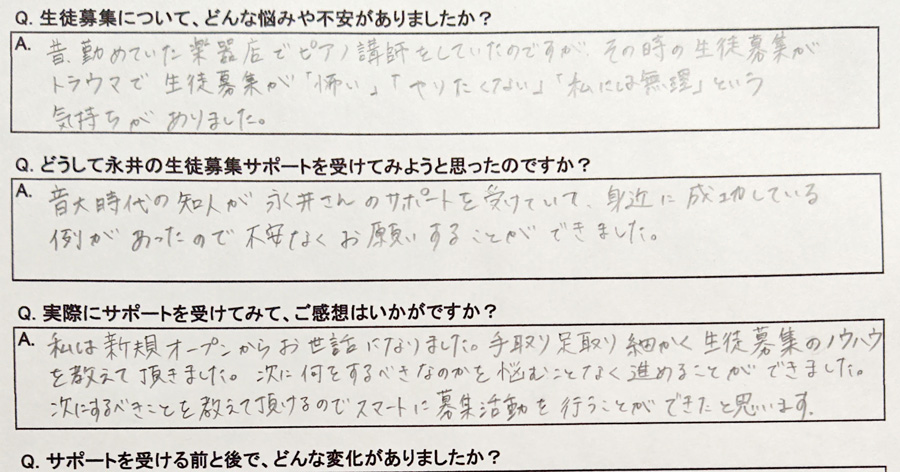 Q. 生徒募集について、どんな悩みや不安がありましたか？
A. 昔、勤めていた楽器店でピアノ講師をしていたのですが、その時の生徒募集が
トラウマで生徒募集が「怖い」「やりたくない」「私には無理」という
気持ちがありました。
Q. どうして永井の生徒募集サポートを受けてみようと思ったのですか？
A. 音大時代の知人が永井さんのサポートを受けていて、身近に成功している
例があったので不安なくお願いすることができました。
Q. 実際にサポートを受けてみて、ご感想はいかがですか？
A. 私は新規オープンからお世話になりました。手取り足取り細かく生徒募集のノウハウ
を教えて頂きました。次に何をするべきなのかを悩むことなく進めることができました。
次にするべきことを教えて頂けるのでスマートに募集活動を行うことができたと思います。
Q. サポートを受ける前と後で、どんな変化がありましたか？